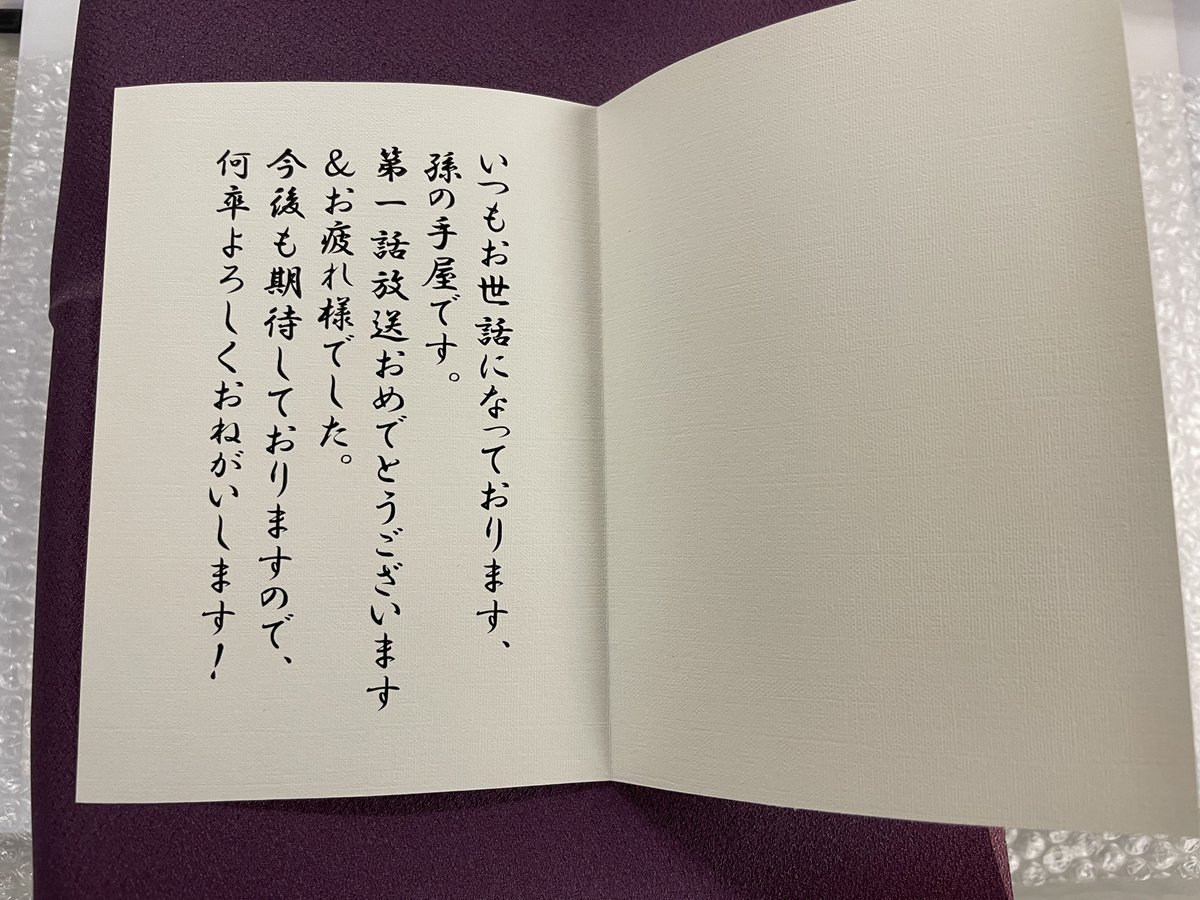 いつもお世話になっております、
孫の手屋です。
第一話放送おめでとうございます
＆お疲れ様でした。
今後も期待しておりますので、
何卒よろしくおねがいします！